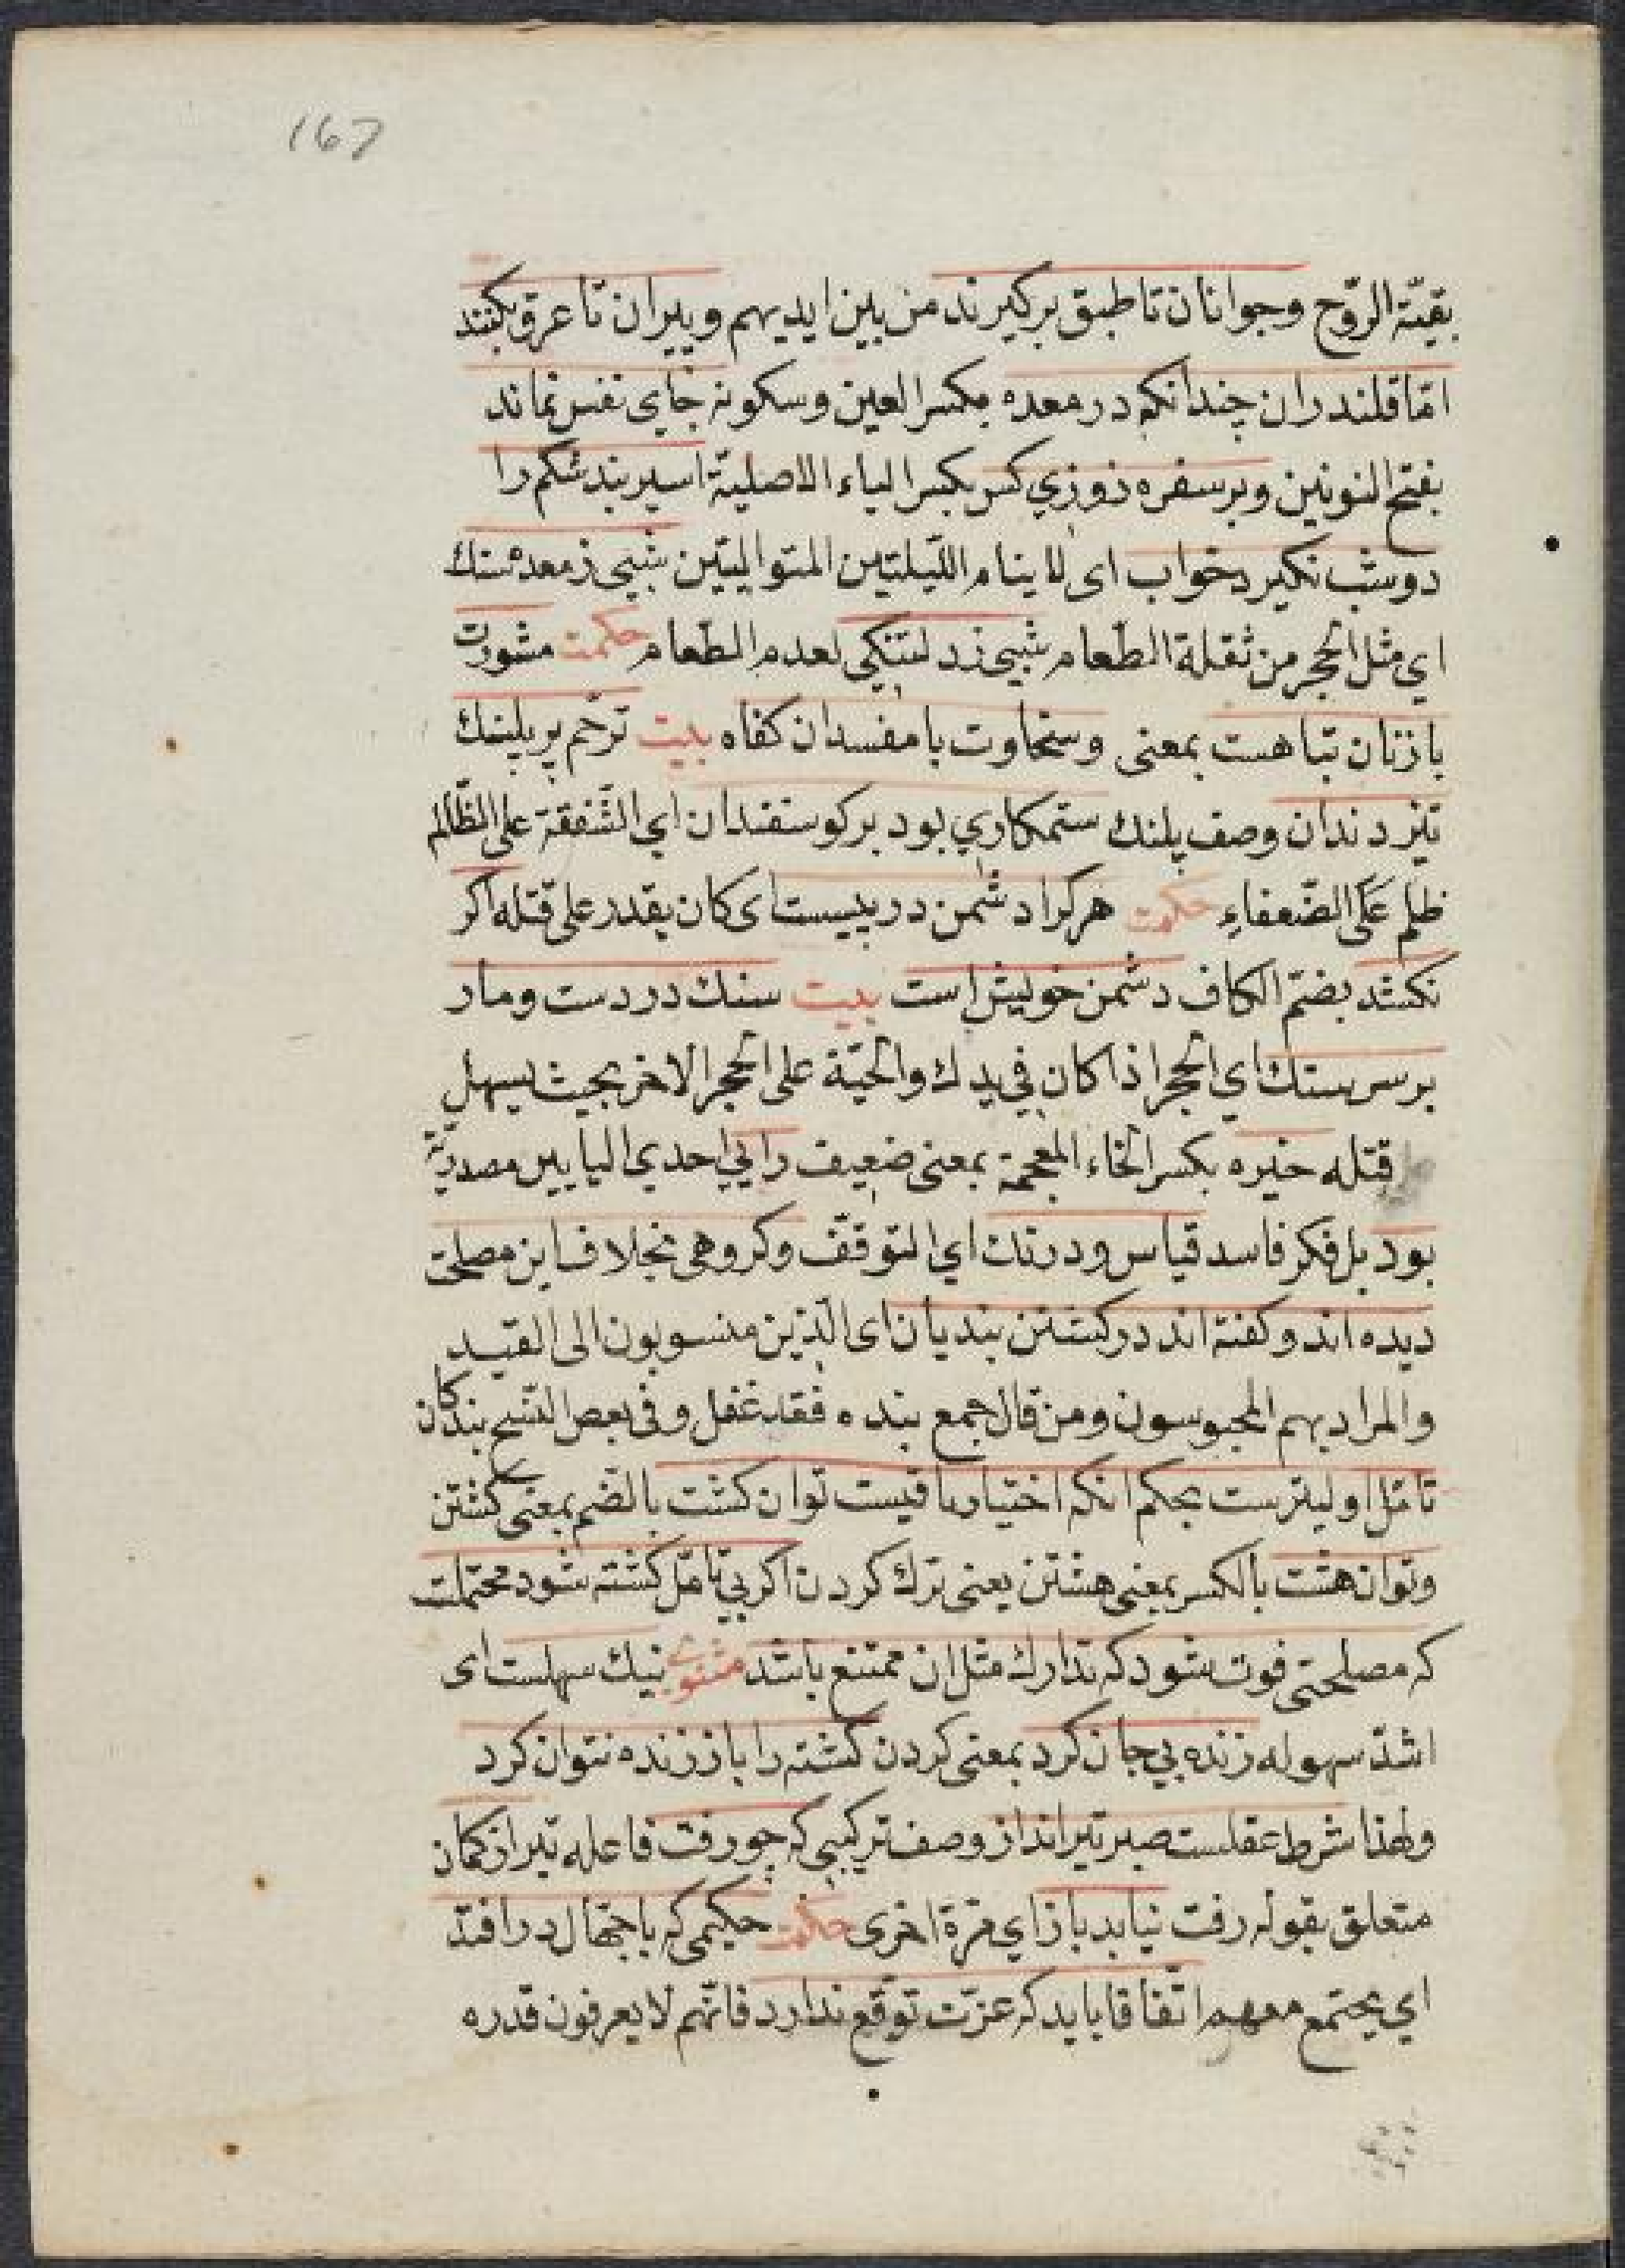 167
بقيّة الرّوح وجوانان تا طبق بركيرند من بين ايديهم وپيران تا عرق بكنند
امّا قلندران چندانكه در معده بكسر العين وسكونه جاى نفس نماند
بفتح النونين وبر سفره روزي كس بكسر الياء الاصليّة اسير بند شكم را
دو شب نكيرد خواب اى لا ينام اللّيلتين المتواليتين شبى ز معده سنك
اي مثل الحجر من ثقلة الطّعام شبى ز دلتنكى لعدم الطّعام حكمت مشورت
با زنان تباهست بمعنى وسخاوت با مفسدان كناه بيت ترحّم بر پلنك
تيز دندان وصف پلنك ستمكاري بود بر كوسفندان اي الشّفقة على الظّالم
ظلم عَلَى الضّعفاءِ حكمت هركرا دشمن در پيست اى كان يقدر على قتله اكر
نكشد بضمّ الكاف دشمن خويش است بيت سنك در دست ومار
بر سر سنك اي الحجر اذا كان في يدك والحيّة على الحجر الاخر بحيث يسهل
قتله خيره بكسر الخاء المعجمة بمعنى ضعيف رايي احدي اليايين مصدريّة
بود بل فكر فاسد قياس ودرنك اي التوقّف وكروهى بخلاف اين مصلحت
ديده اند وكفته اند در كشتن بنديان اى الّذين منسوبون الى القيد
والمراد بهم المحبوسون ومن قال جمع بنده فقد غفل وفى بعض النّسخ بندكان
تامّل اوليترست بحكم انكه اختيار باقيست توان كشت بالضّم بمعنى كشتن
وتوان هشت بالكسر بمعنى هشتن يعنى ترك كردن اكر بي تامّل كشته شود محتملست
كه مصلحتى فوت شود كه تدارك مثل ان ممتنع باشد مثنوي نيك سهلست اى
اشدّ سهوله زنده بي جان كرد بمعنى كردن كشته را باز زنده نتوان كرد
ولهذا شرط عقلست صبر تير انداز وصف تركيبى كه چو رفت فاعله تير از كمان
متعلق بقوله رفت نيايد باز اي مرّة اخرى حكمت حكيمى كه با جهّال در افتد
اي يجتمع معهم اتّفاقا بايد كه عزّت توقّع ندارد فانّهم لا يعرفون قدره